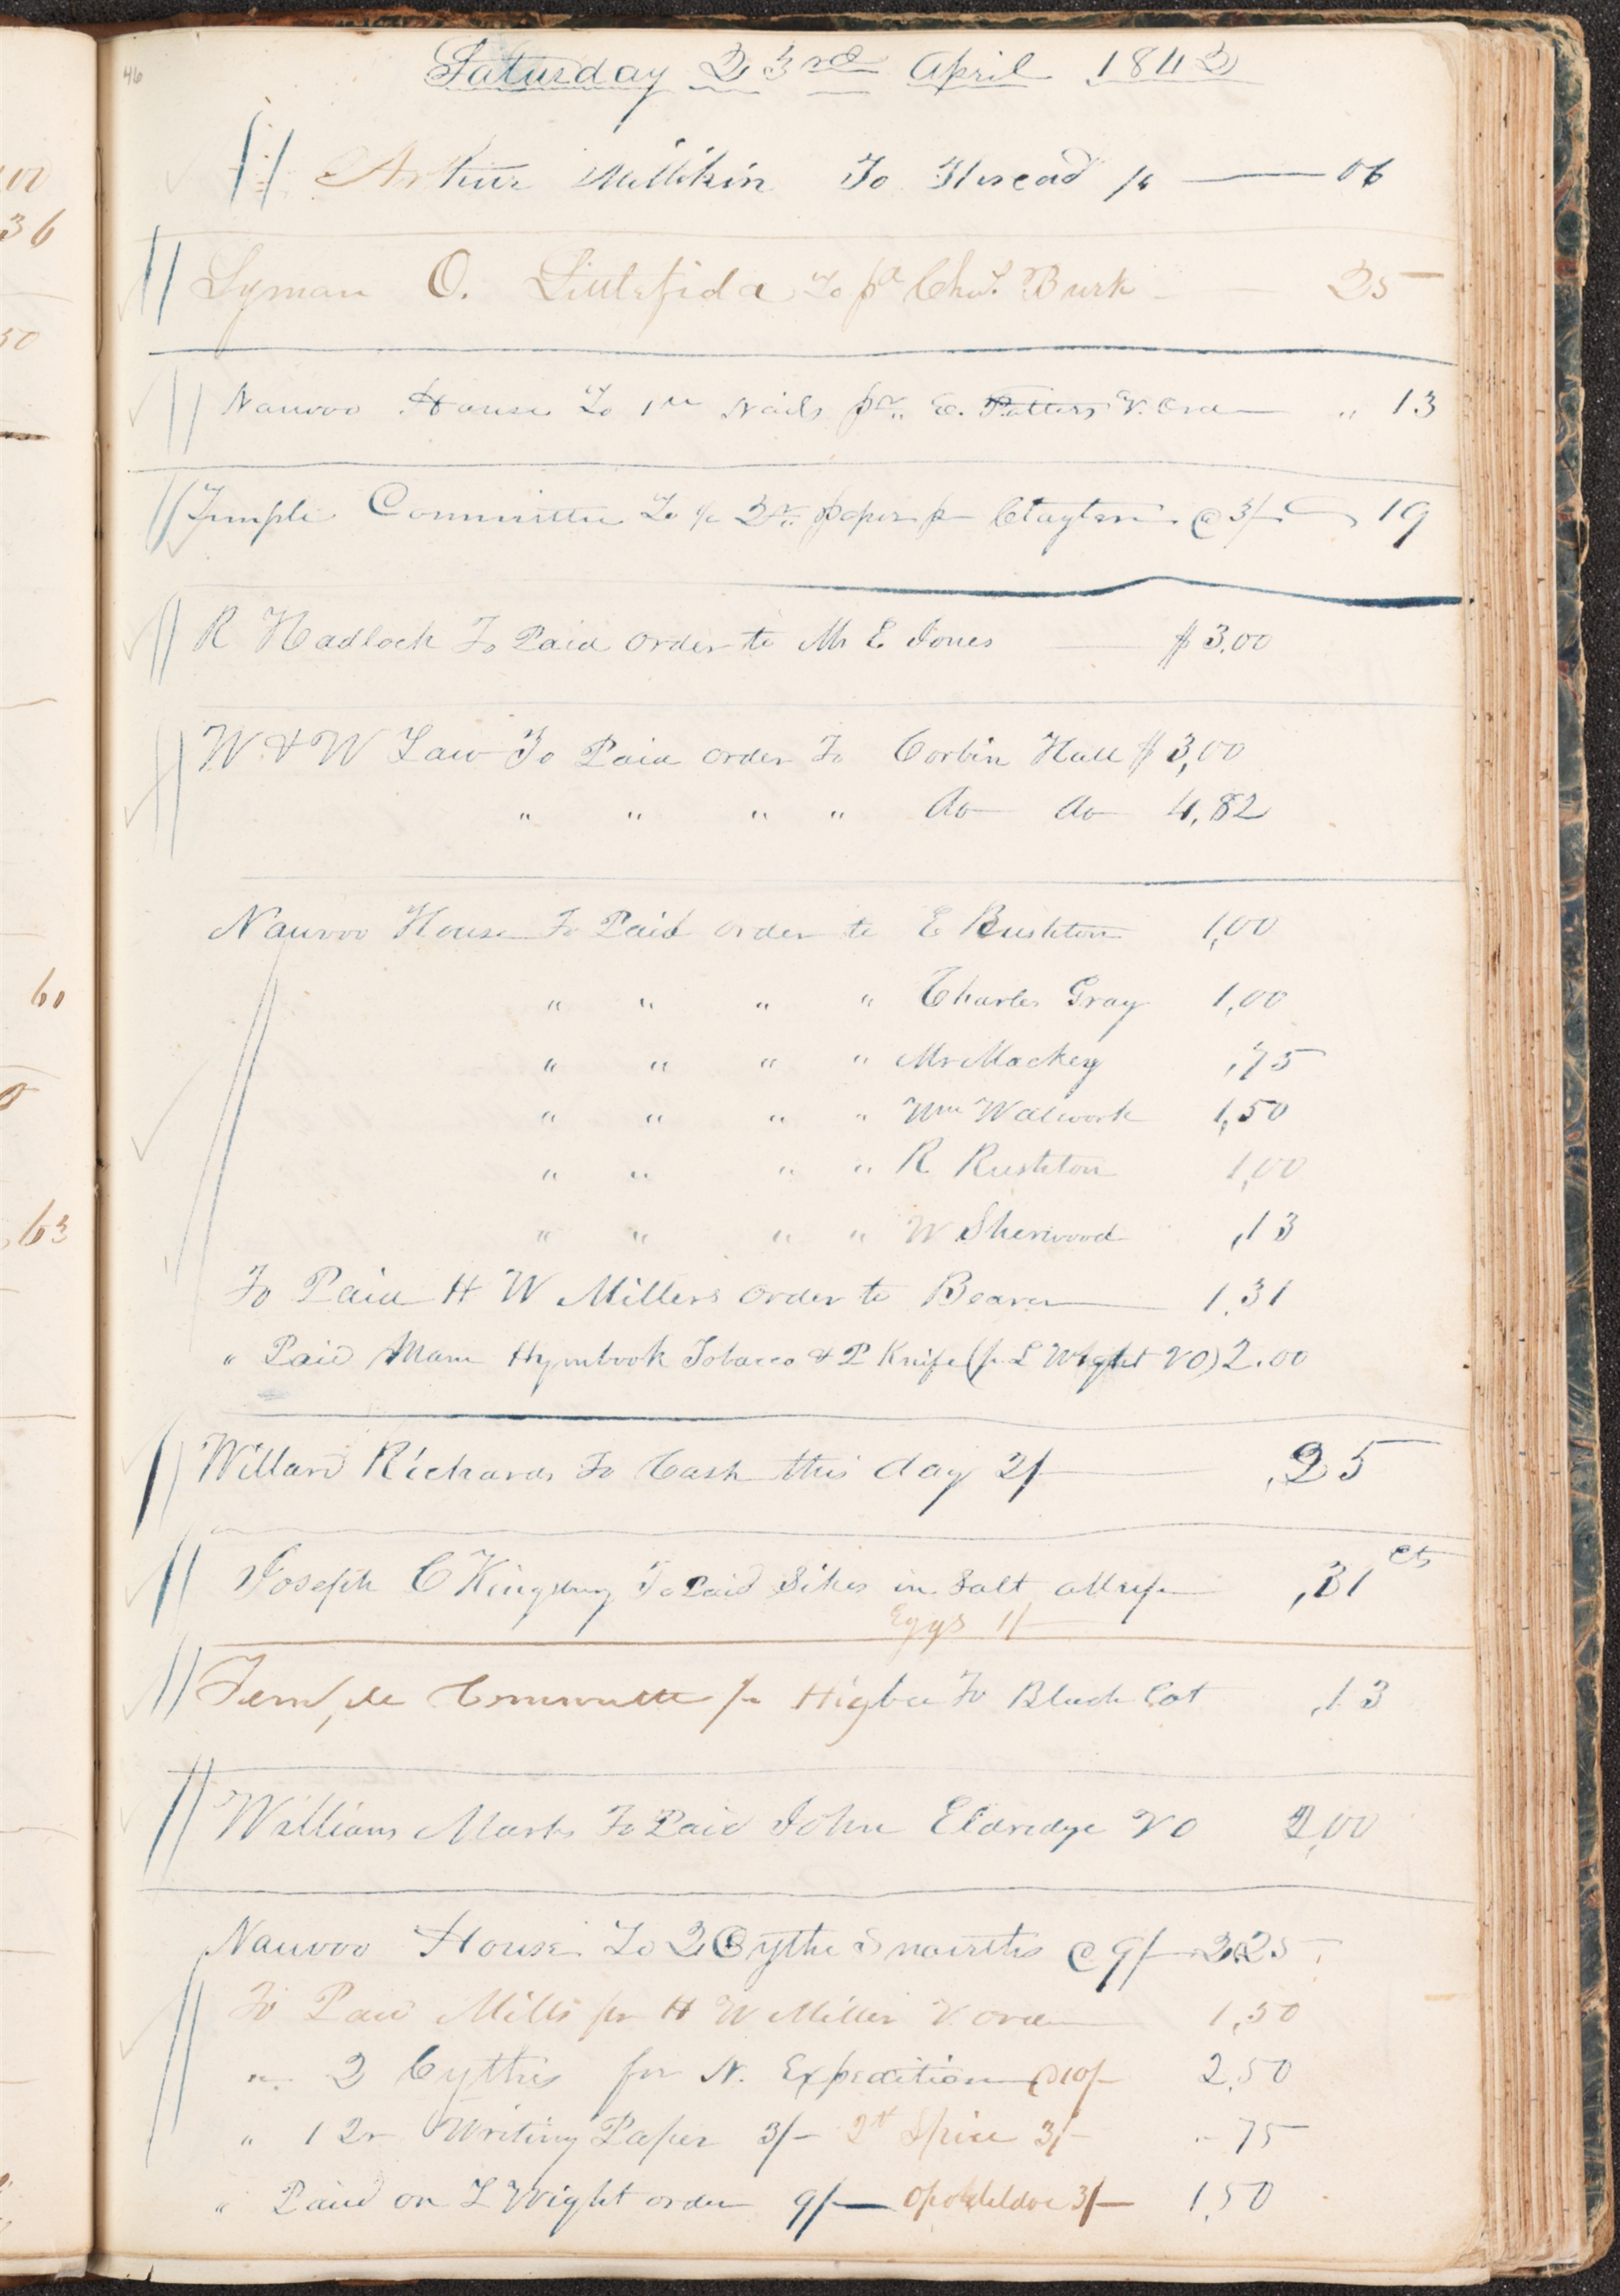 46
Saturday 23rd April 1842
Arthur Millikin To Thread /6 06
Lyman O. Littlefield To pd Chas. Burk 25
Nauvoo House To 1 lb Nails pr. E. Potters V. Order " 13
Temple Committee To ½ Qr. paper pr Clayton @ 3/ 19
R Hadlock To Paid order to Mr E Jones $3.00
W & W Law To Paid order To Corbin Hall $3,00
" " " " do do 4,82
Nauvoo House To Paid order to E Rushton 1,00
" " " " Charles Gray 1,00
" " " " Mr Mackey ,75
" " " " Wm Walwork 1,50
" " " " R Rushton 1,00
" " " " W Sherwood ,13
To Paid H W Millers order to Bearer 1.31
" Paid Mam Hymbook Tobacco & P Knife (pr L Wight VO) 2.00
Willard Richards To Cash this day 2/ ,25
Joseph C Kingsbury To Paid Sikes in Salt ,31 cts
Eggs 1/
Temple Committee pr Higbee To Black Cot ,13
William Marks To Paid John Eldredge VO 2,00
Nauvoo House To 2 Cythe Snaiths @ 9/ 2.25
To Paid Mills pr H W Miller V. order 1,50
" 2 Cythes for N. Expedition @10/ 2,50
" 1 Qr Writing Paper 3/- 2 lb Spice 3/- " 75
" Paid on L Wight order 9/- Opodeldoc 3/- 1,50
60
63
36
50